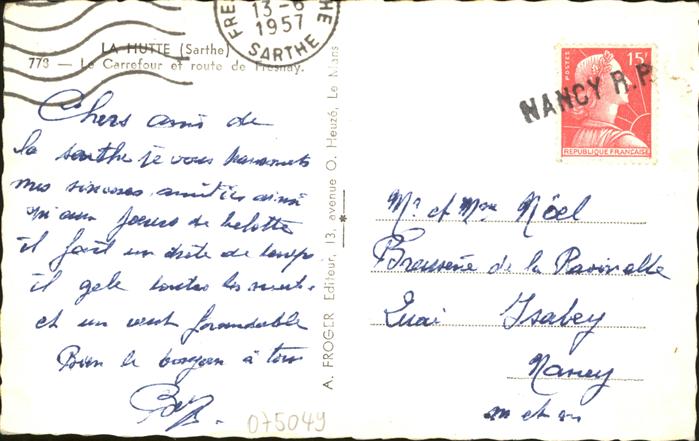 FRES
HE
13-6
1957
SARTHE
LA HUTTE (Sarthe)
773 — Le Carrefour et route de Fresnay.
Chers amis de
la sarthe je vous transmets
mes sincères amitiés ainsi
qu'aux joueurs de belotte
il fait un drôle de temps
il gele toutes les nuits
et un vent formidable
Bien le bonjour à tous
A. FROGER Editeur, 13, avenue O. Heuzé, Le Mans
075049
POSTES
15F
REPUBLIQUE FRANÇAISE
NANCY R.P.
Mr et Mme Nöel
Brasserie de la
Quai Isabey
Nancy
M et M